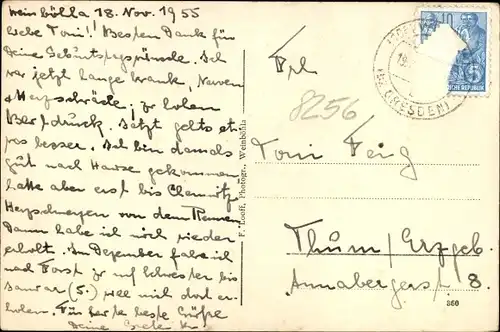 Weinböhla 18. Nov. 1955
liebe Toni! Besten Dank für
Deine Geburtstagswünsche. Ich
war jetzt lange krank, Nerven
& Herzschwäche, zu hohen
Blutdruck. Jetzt gehts et-
was besser. Ich bin damals
gut nach Hause gekommen,
hatte aber erst bis Chemnitz
Herzschmerzen von dem Rennen
Dann habe ich mich wieder
erholt. Im Dezember fahre ich
nach zur Schwester bis
Januar (5.) will mich dort er-
holen. Für heute beste Grüße
Deine
F. Looff, Photogr., Weinböhla
Frl.
8256
Toni Feig
Thum/Erzgeb.
Annabergerstr 8.
360
10
(BZ. DRESDEN)
SCHE REPUBLIK